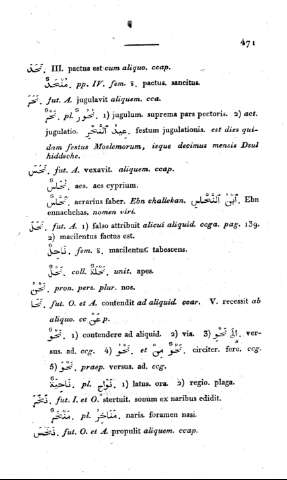 471
III. pactus est cum aliquo. ccap.
pp. IV. fem. ة. pactus, sancitus.
نَحَرَ. fut. A. jugulavit aliquem. cca.
نَحْرٌ. pl. نُحُورٌ. 1) jugulum. suprema pars pectoris. 2) act.
jugulatio. عِيدُ ٱلنَّحْرِ. festum jugulationis. est dies qui-
dam festus Moslemorum, isque decimus mensis Dsul
hiddsche.
نَحَسَ. fut. A. vexavit. aliquem. ccap.
نُحَاسٌ. aes. aes cyprium.
نَحَّاسٌ. aerarius faber. Ebn challekan. Ebn
ennachchas. nomen viri.
نَحَلَ. fut. A. 1) falso attribuit alicui aliquid. ccga. pag. 139.
2) macilentus factus est.
نَاحِلٌ. fem. ة. macilentus tabescens.
نَحْلٌ. coll. نَحْلَةٌ. unit. apes.
نَحْنُ. pron. pers. plur. nos.
نَحَا. fut. O. et A. contendit ad aliquid. ccar. V. recessit ab
aliquo. cc عَنْ p.
نَحْوٌ. 1) contendere ad aliquid. 2) via. 3) ver-
sus. ad. ccg. 4) نَحْوٌ et نَحْوٌ مِنْ. circiter. fere. ccg.
5) نَحْوَ. praep. versus. ad. ccg.
نَاحِيَةٌ. pl. نَوَاحٍ. 1) latus. ora. 2) regio. plaga.
نَخَرَ. fut. I. et O. stertuit. sonum ex naribus edidit.
pl. مَنَاخِرُ. naris. foramen nasi.
نَخَسَ. fut. O. et A. propulit aliquem. ccap.